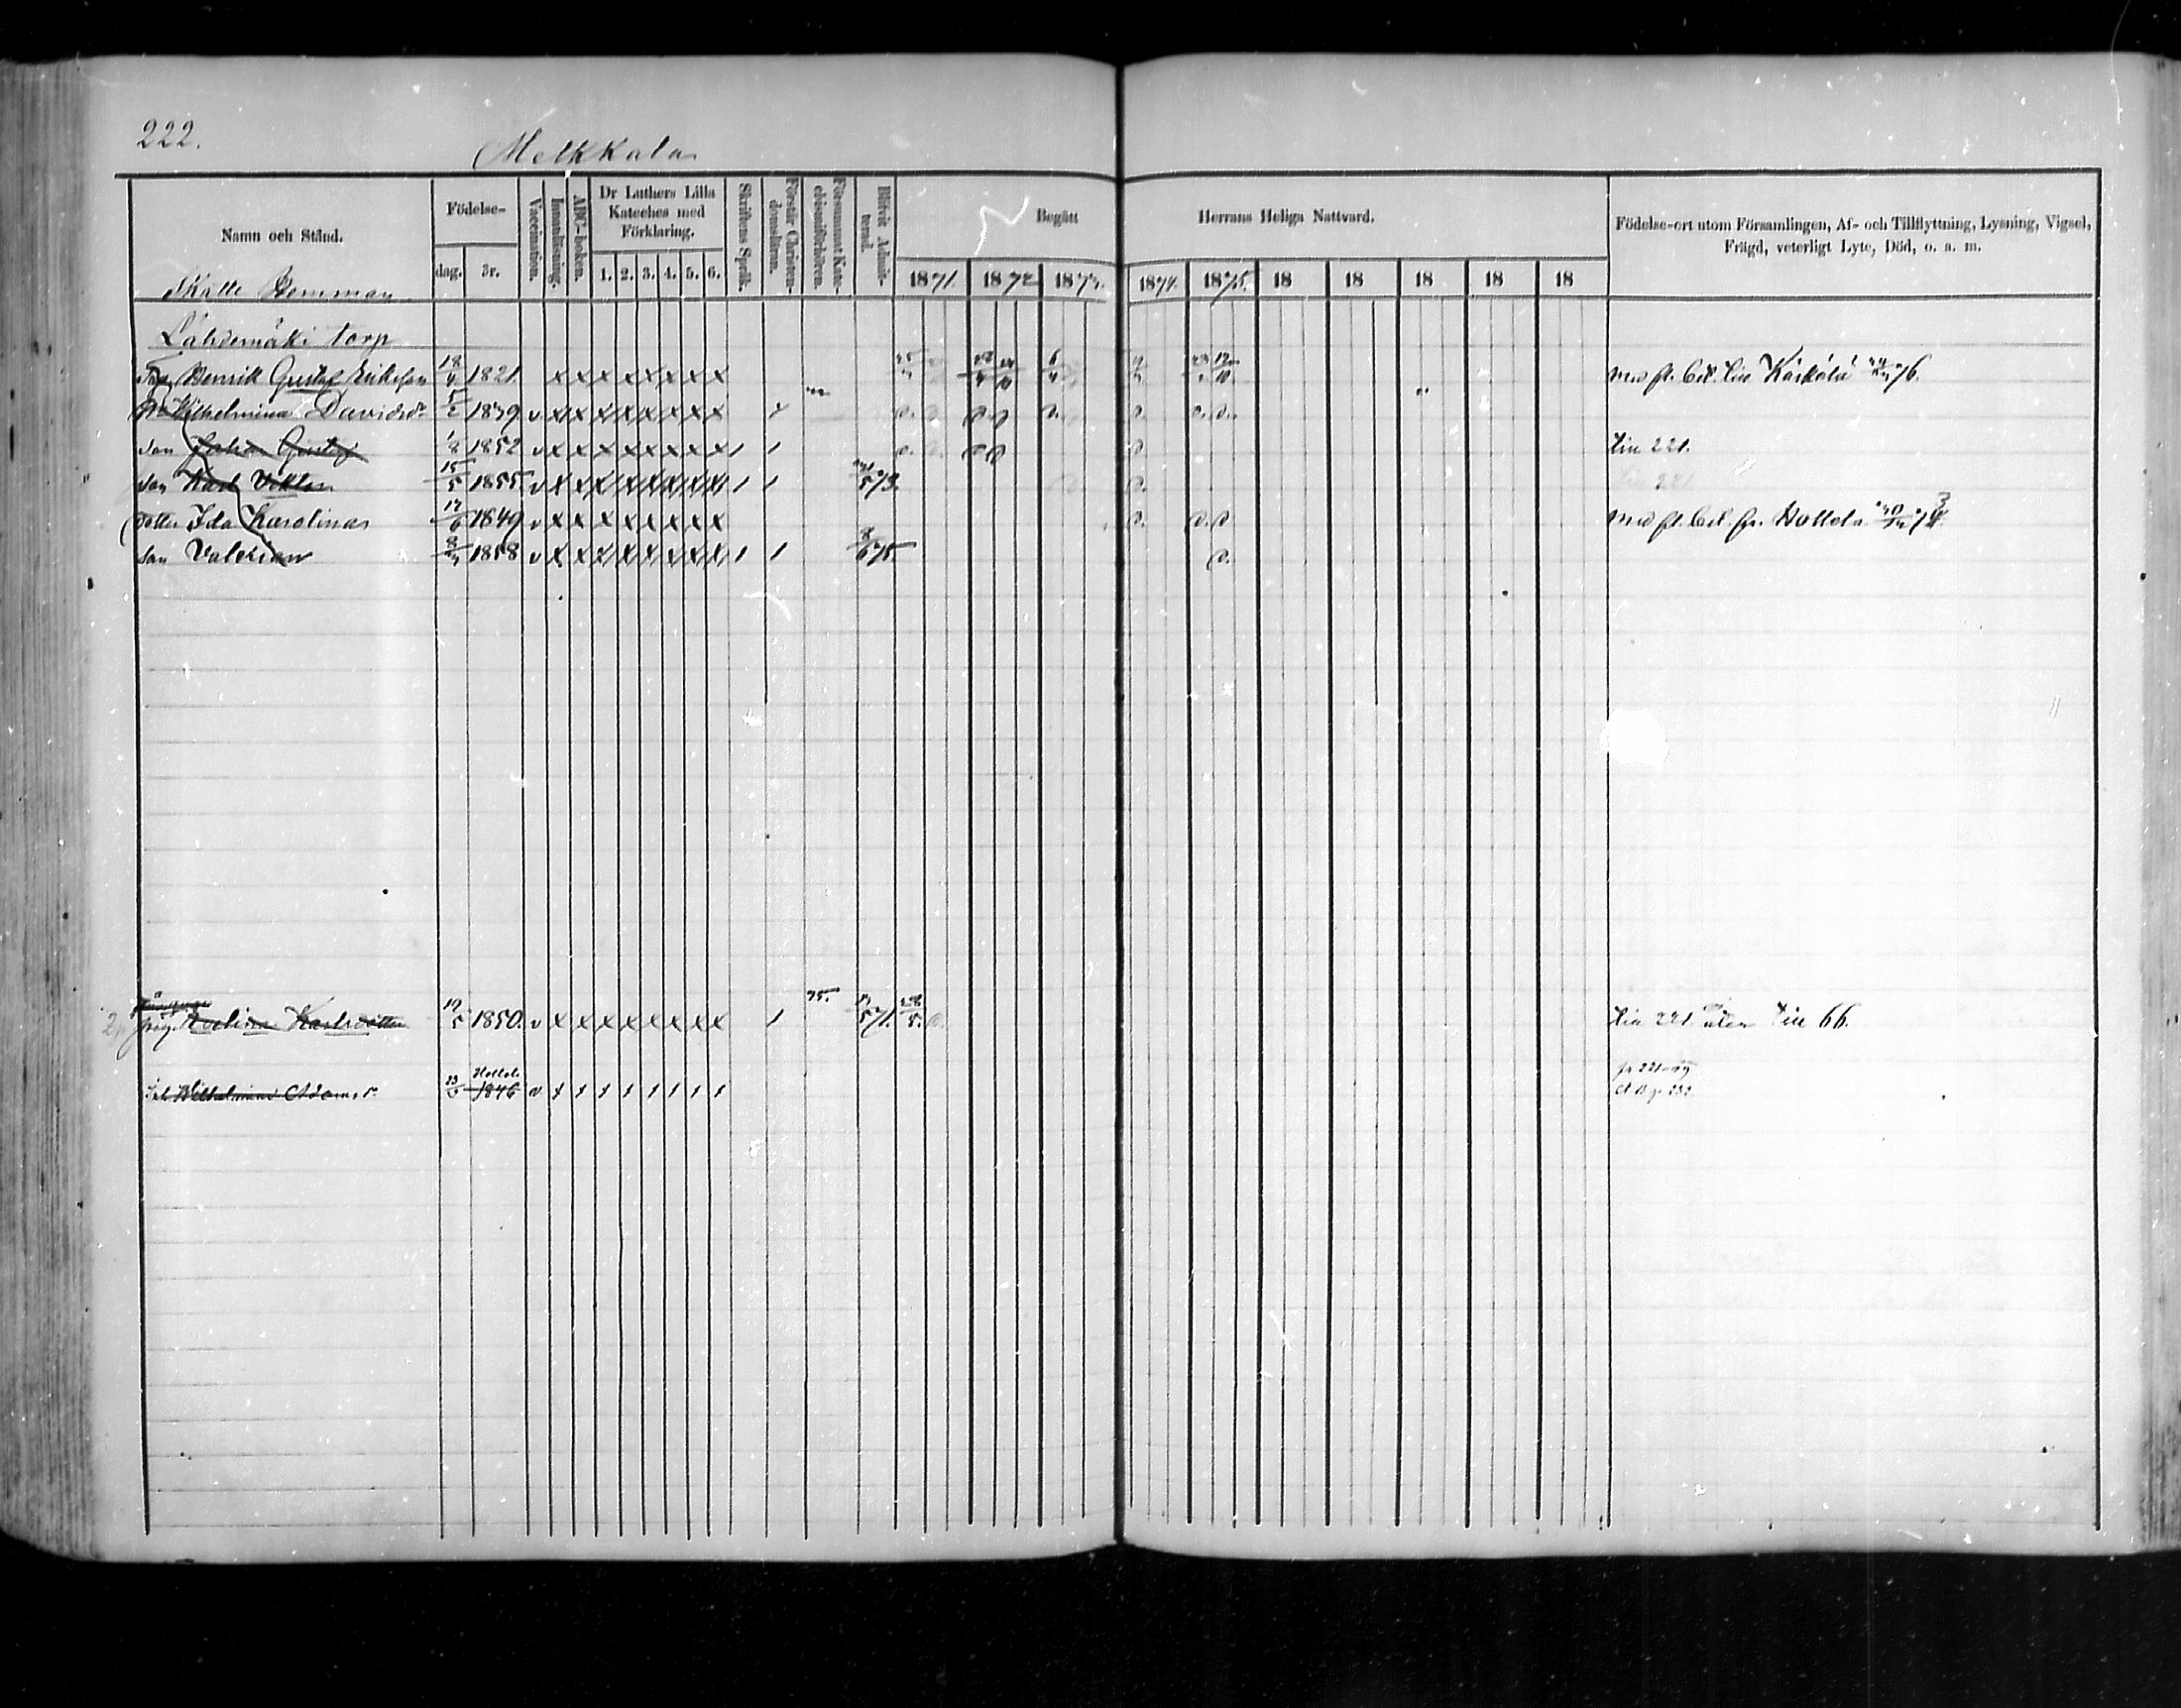 222.
Melkkala
Namn och Stånd.
Födelse-
dag.
år.
Vaccination.
Innanläsning.
ABC-boken.
Dr Luthers Lilla Kateches med Förklaring.
1. 2. 3. 4. 5. 6.
Skriftens Språk.
Förstår Christendomsläran.
Försummat Katechismiförhören.
Blifvit Admitterad.
Begått Herrans Heliga Nattvard.
1871. 1872 1873. 1874. 1875. 18 18 18 18 18
Födelse-ort utom Församlingen, Af- och Tillflyttning, Lysning, Vigsel,
Frägd, veterligt Lyte, Död, o. a. m.
Skatte Hemman
Lähdemäki torp
Henrik Gustaf Eriksson 18/4 1821. x x x x x x x x med fl. bet. till Kärkölä 76.
Wilhelmina Davidsdr 5/2 1839 v x x x x x x x x
son Johan Gustaf 1852 v x x x x x x x x 1 1 till 221.
son Karl Viktor 15/5 1855 v x x x x x x x x 1 1
dotter Ida Karolina 17/6 1849 v x x x x x x x x med fl. bet. fr. Hollola
son Valerian 1858 v x x x x x x x x 1 1 8/6 75
pig. Evelina Karlsdotter 19/5 1850. v x x x x x x x x 1 75. till 221 till 66.
Hollola
Wilhelmina Adamsdr 1846 v 1 1 1 1 1 1 1 1
fr 221